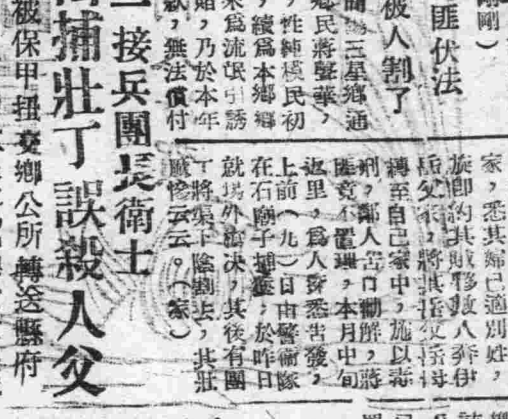 匪伏法
剛剛）
被人割了
三星鄉通
鄉民蔣
，性純樸民初
，續爲本鄉鄉
來爲流氓引誘
賭，乃於本年
款，無法償付
家，悉其婦已適別姓，
旋卽約其故夥數人奔伊
岳父家，將其岳父岳母
縛至自己家中，施以毒
刑，鄰人苦口勸解，蔣
匪竟不置理，本月中旬
返里，爲人探悉告發，
上前（九）日由警衛隊
在石廟子捕獲，於昨日
就場外槍決，其後有團
丁將下陰割去，其壯
慘云云。（家）
接兵團長衛士
捕壯丁誤殺人父
被保甲扭交鄉公所轉送縣府